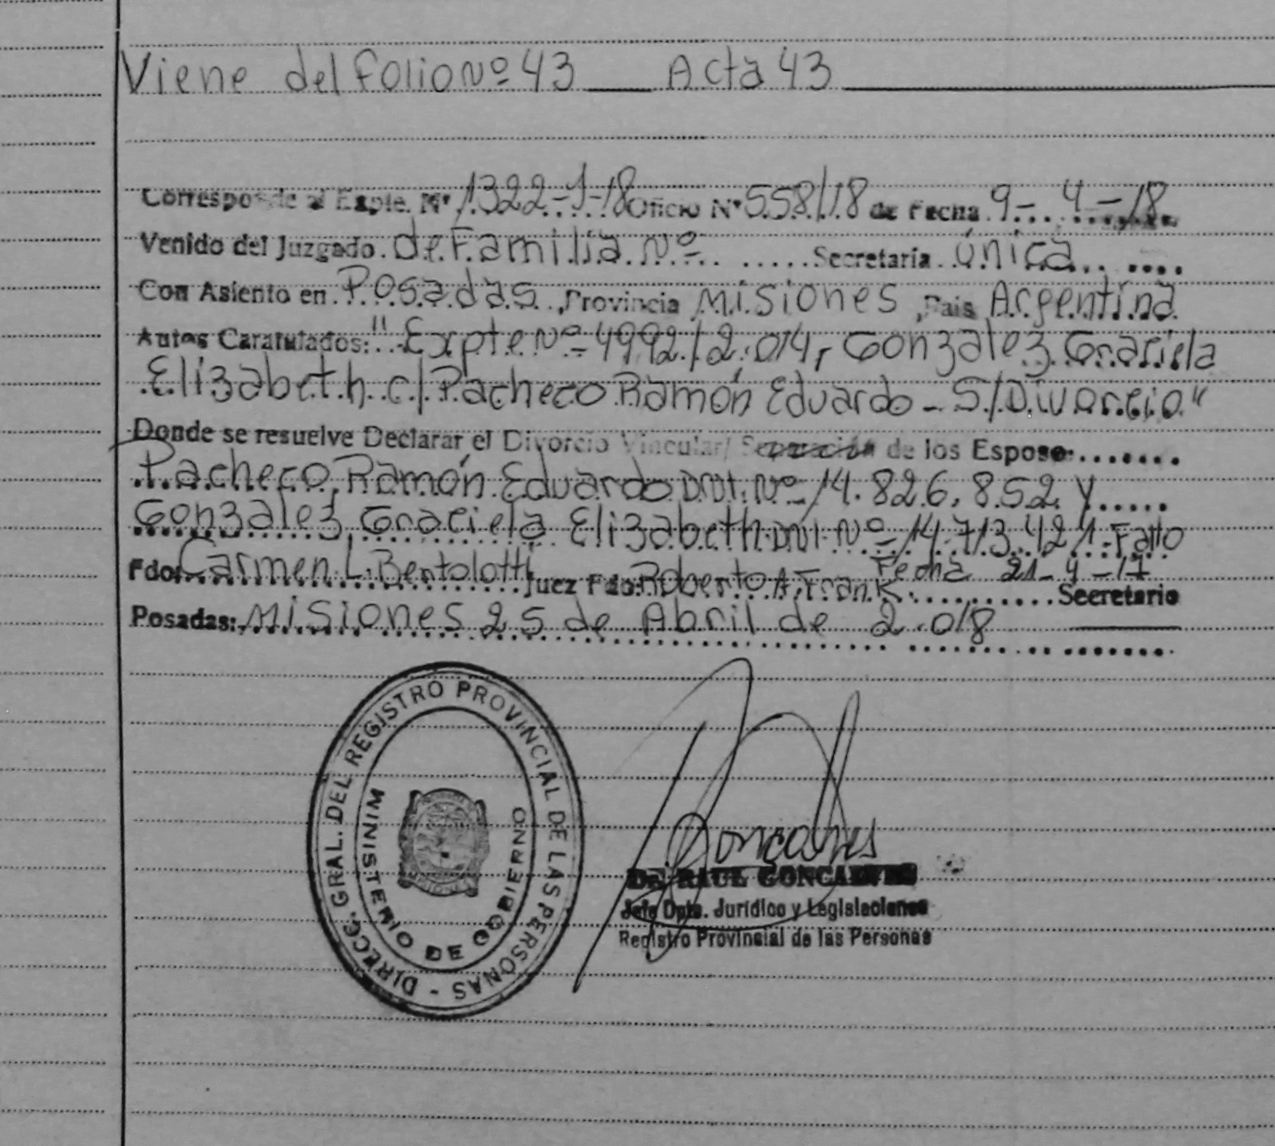 Viene del folio Nº 43 ___ Acta 43
Corresponde al Expte. Nº 1322-J-18 Oficio Nº 558/18 de Fecha 9-4-18
Venido del Juzgado de Familia Nº Secretaría única
Con Asiento en Posadas, Provincia Misiones, País Argentina
Autos Caratulados: "Expte Nº 4992/2.014, Gonzalez Graciela
Elizabeth c/ Pacheco Ramón Eduardo - S/Divorcio"
Donde se resuelve Declarar el Divorcio Vincular/ Separación de los Esposo:
Pacheco, Ramón Eduardo DNI. Nº 14.826.852 y
Gonzalez, Graciela Elizabeth DNI Nº 14.713.421. Fallo
Fecha 21-4-17
Fdo. Carmen L. Bertolotti Juez Fdo: Roberto A. Frank Secretario
Posadas: Misiones 25 de Abril de 2.018
DIRECC. GRAL. DEL REGISTRO PROVINCIAL DE LAS PERSONAS -
MINISTERIO DE GOBIERNO
Goncalves
Dr. RAUL GONCALVES
Jefe Dpto. Jurídico y Legislaciones
Registro Provincial de las Personas